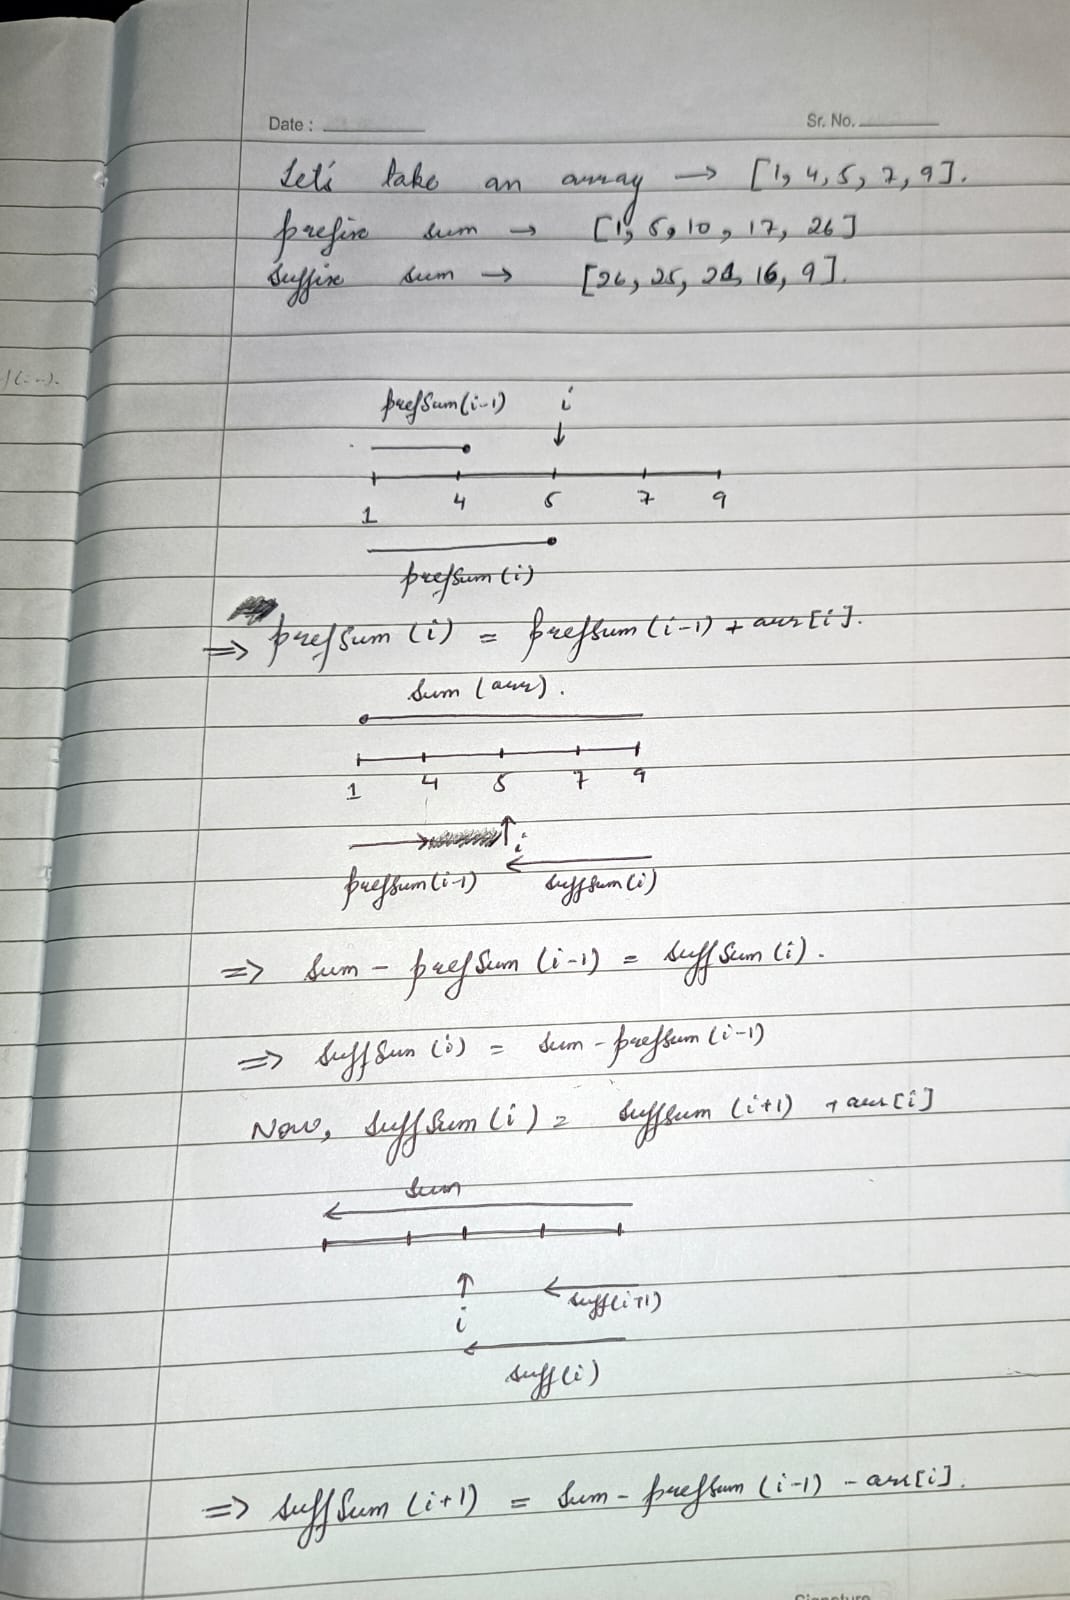 Date :
Sr. No.
Let's take an array → [1, 4, 5, 7, 9].
prefix sum → [1, 5, 10, 17, 26]
suffix sum → [26, 25, 21, 16, 9].
prefSum(i-1) i
↓
1 4 5 7 9
prefSum(i)
⇒ prefSum (i) = prefSum (i-1) + arr[i].
Sum (arr).
1 4 5 7 9
↑ i
prefSum(i-1) suffSum(i)
⇒ Sum - prefSum (i-1) = suffSum (i).
⇒ suffSum (i) = sum - prefSum (i-1)
Now, suffSum (i) = suffSum (i+1) + arr[i]
Sum
↑
suff(i+1)
i
suff(i)
⇒ suffSum (i+1) = sum - prefSum (i-1) - arr[i].